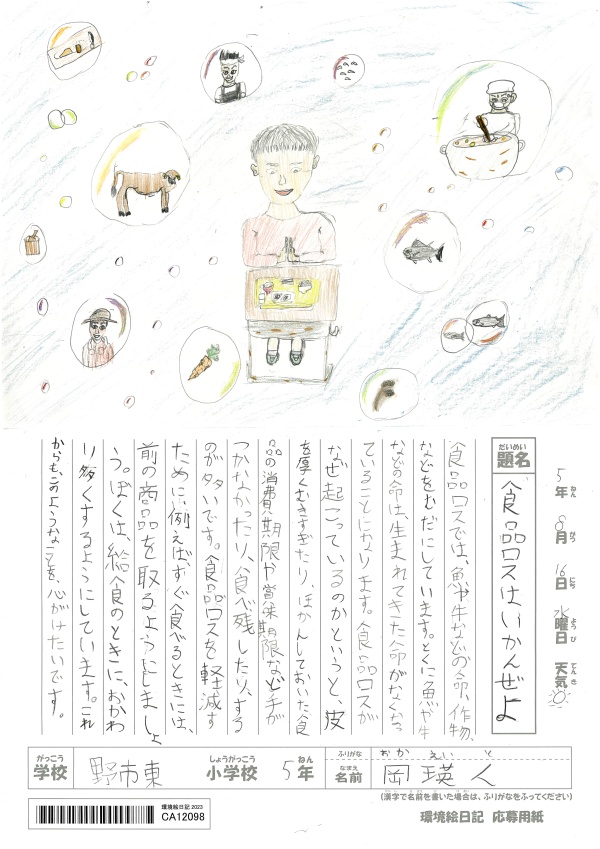 5年 8月 16日 水曜日 天気
ねん がつ にち ようび てんき
だいめい
題名
食品ロスはいかんぜよ
食品ロスでは、魚、牛などの命、作物、
などをむだにしています。とくに魚や牛
などの命は、生まれてきた命がなくなっ
ていることになります。食品ロスが
なぜ起こっているのかというと、皮
を厚くむきすぎたり、ほかんしておいた食
品の消費期限や賞味期限など手が
つかなかったり、食べ残したり、する
のが多いです。食品ロスを軽減す
ために、例えば、すぐ食べるときには、
前の商品を取るようにしましょ
う。ぼくは、給食のときに、おかわ
り多くするようにしています。これ
からも、このようなことを、心がけたいです。
がっこう しょうがっこう ねん
学校 野市東 小学校 5年
ふりがな おか えい と
なまえ
名前 岡 瑛人
(漢字で名前を書いた場合は、ふりがなをふってください)
環境絵日記 2023
CA12098
環境絵日記 応募用紙